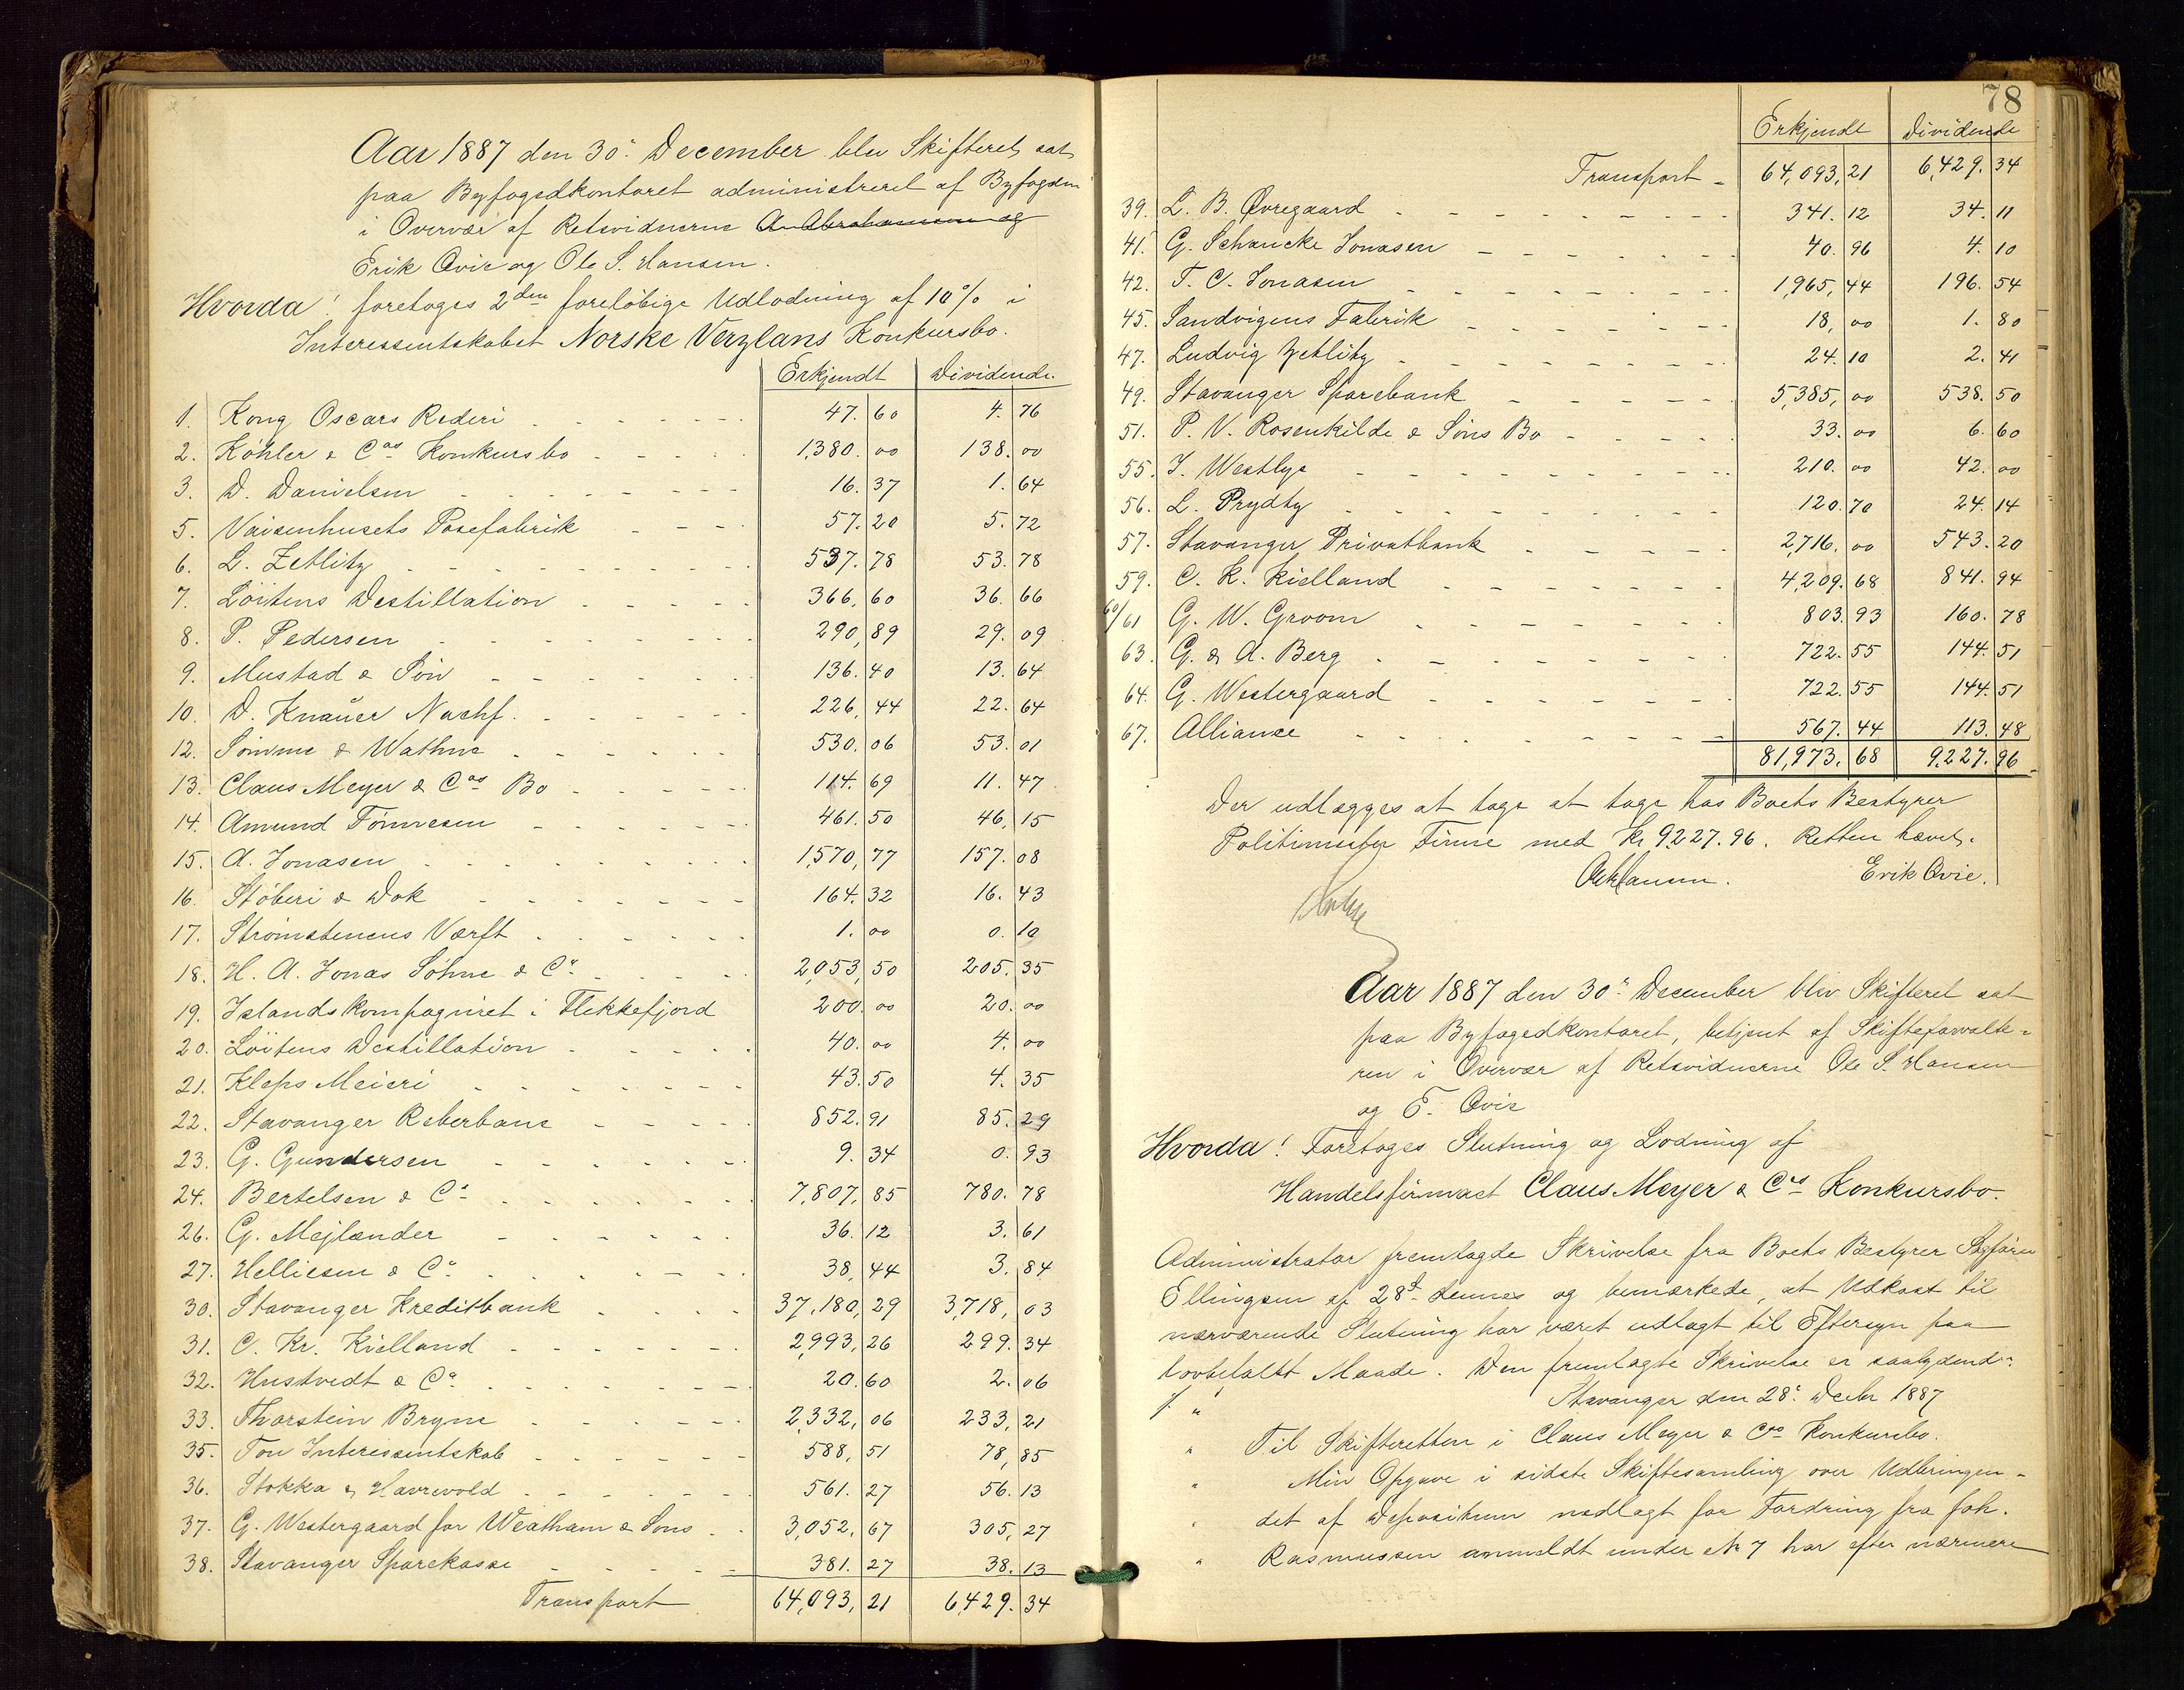 Aar 1887 den 30' December blev Skifteret sat
paa Byfogedkontoret administreret af Byfogden
i Overvær af Retsvidnerne A. Abrahamsen og
Erik Qvie og Ole S. Hansen.
Hvorda! foretoges 2den foreløbige Udlodning af 10% i
Interessentskabet Norske Verzlans Konkursbo.
Erkjendt Dividende.
1. Kong Oscars Rederi 47. 60 4. 76
2. Köhler & Cos Konkursbo 1,380. 00 138. 00
3. D. Danielsen 16. 37 1. 64
5. Vaisenhusets Posefabrik 57. 20 5. 72
6. L. Zetlitz 537. 78 53. 78
7. Löitens Destillation 366, 60 36. 66
8. P. Pedersen 290, 89 29. 09
9. Mustad & Søn 136. 40 13. 64
10. D. Knauer Nachf. 226, 44 22. 64
12. Sömme & Wathne 530. 06 53. 01
13. Claus Meyer & Cos Bo 114. 69 11. 47
14. Amund Tönnesen 461. 50 46, 15
15. A. Jonasen 1,570, 77 157. 08
16. Støberi & Dok 164. 32 16. 43
17. Strömstenens Værft 1. 00 0. 10
18. H. A. Jonas Söhne & Co 2,053, 50 205. 35
19. Islandskompagniet i Flekkefjord 200. 00 20. 00
20. Löitens Destillation 40. 00 4. 00
21. Kleps Meieri 43. 50 4. 35
22. Stavanger Reberbane 852. 91 85. 29
23. G. Gundersen 9. 34 0. 93
24. Bertelsen & Co 7,807, 85 780. 78
26. G. Mejlænder 36. 12 3. 61
27. Helliesen & Co 38, 44 3. 84
30. Stavanger Kreditbank 37,180, 29 3,718, 03
31. C. Kr. Kielland 2,993, 26 299. 34
32. Hustvedt & Co 20. 60 2. 06
33. Thorstein Bryne 2,332, 06 233, 21
35. Ton Interessentskab 588, 51 78, 85
36. Stokka & Havrevold 561. 27 56. 13
37. G. Westergaard for Weatham & Sons 3,052, 67 305, 27
38. Stavanger Sparekasse 381. 27 38. 13
Transport 64,093, 21 6,429. 34
78
Erkjendt Dividende
Transport 64,093, 21 6,429. 34
39. L. B. Øvregaard 341. 12 34. 11
41. G. Schancke Jonasen 40. 96 4. 10
42. T. C. Jonasen 1,965, 44 196. 54
45. Sandvigens Fabrik 18, 00 1. 80
47. Ludvig Zetlitz 24. 10 2. 41
49. Stavanger Sparebank 5,385, 00 538. 50
51. P. V. Rosenkilde & Söns Bo 33. 00 6. 60
55. I. Westlye 210. 00 42. 00
56. L. Prydtz 120. 70 24. 14
57. Stavanger Privatbank 2,716. 00 543. 20
59. C. K. Kielland 4,209. 68 841. 94
60/61 G. W. Groom 803. 93 160. 78
63. G. & A. Berg 722. 55 144. 51
64. G. Westergaard 722. 55 144. 51
67. Alliance 567. 44 113. 48
81,973. 68 9,227. 96
Der udlægges at tage at tage hos Boets Bestyrer
Politimester Finne med Kr 9,227. 96. Retten hævet.
OSHansen. Erik Qvie.
Aar 1887 den 30' December blev Skifteret sat
paa Byfogedkontoret, betjent af Skifteforvalte-
ren i Overvær af Retsvidnerne Ole S. Hansen
og E. Qvie
Hvorda! Foretoges Slutning og Lodning af
Handelsfirmaet Claus Meyer & Cos Konkursbo.
Administrator fremlagde Skrivelse fra Boets Bestyrer Sagfører
Ellingsen af 28d dennes og bemærkede, at Udkast til
nærværende Slutning har været udlagt til Eftersyn paa
lovbefalet Maade. Den fremlagte Skrivelse er saalydende:
" Stavanger den 28' Decbr 1887
" Til Skifteretten i Claus Meyer & Cos Konkursbo.
" Min Opgave i sidste Skiftesamling over Udbringen-
" det af Depositum nedlagt for Fordring fra Joh.
" Rasmussen anmeldt under No 7 har efter nærmere